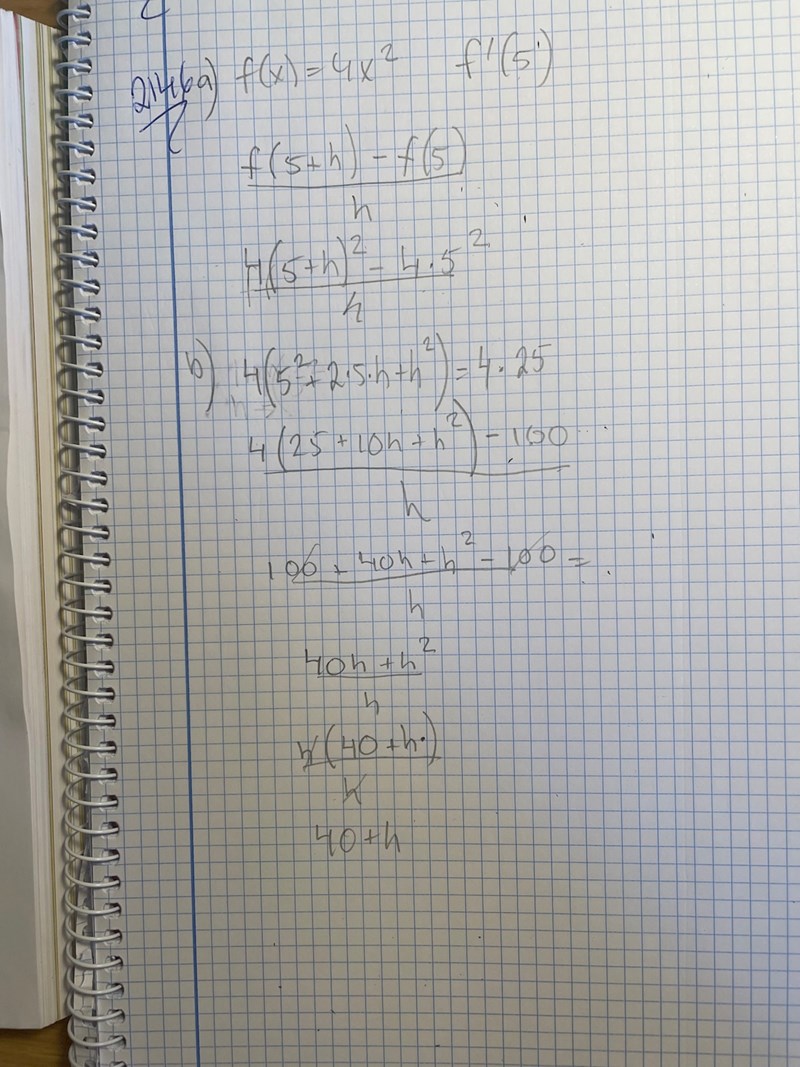 2146a) f(x) = 4x² f'(5)
f(5+h) - f(5)
h
4(5+h)² - 4·5²
h
b) 4(5²+2·5·h+h²) = 4·25
4(25+10h+h²) - 100
h
100 + 40h + h² - 100 =
h
40h + h²
h
h(40+h·)
h
40+h